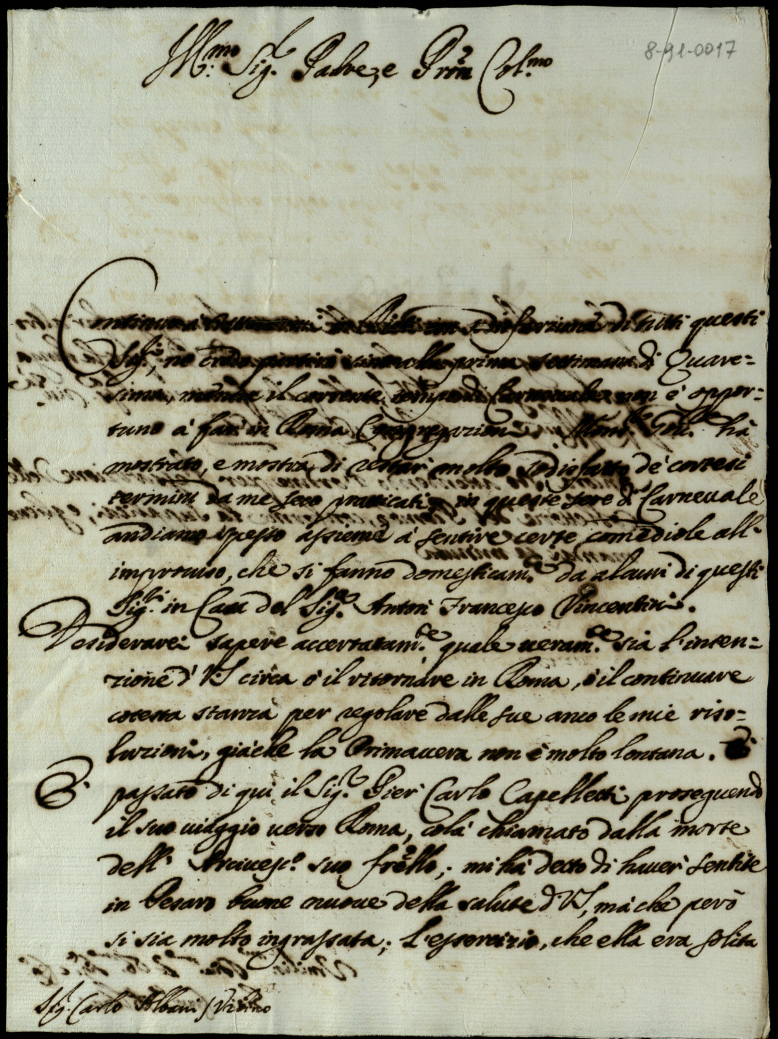 8-91-0017
Ill.mo Sig.r Padre, e Pron Col.mo
Continua à in Rieti con sodisfazione di tutti questi
Sig.ri, ne credo partirà sino alla prima settimana di Quare=
sima, mentre il corrente tempo di Carnevale non è oppor=
tuno à fare in Roma Congregazioni. Mons.r ha
mostrato, e mostra di restar molto sodisfatto de' cortesi
termini da me seco praticati; in queste sere di Carnevale
andiamo spesso assieme à sentire certe comediole all'
improuiso, che si fanno domesticam.te da alcuni di questi
Sig.ri in Casa del Sig.r Anton Francesco Vincentini.
Desiderarei sapere accertatam.te quale ueram.te sia l'inten=
zione d' VS circa ò il ritornare in Roma, ò il continuare
cotesta stanza per regolare dalle sue anco le mie riso=
luzioni, giache la Primauera non è molto lontana.
È passato di qui il Sig.r Pier Carlo Capelletti proseguendo
il suo uiaggio uerso Roma, colà chiamato dalla morte
dell' Arciuesc.o suo frello; mi hà detto di hauer sentite
in Pesaro buone nuoue della salute d' VS, mà che però
si sia molto ingrassata; l'essercizio, che ella era solita
Sig.r Carlo Albani / Urbino